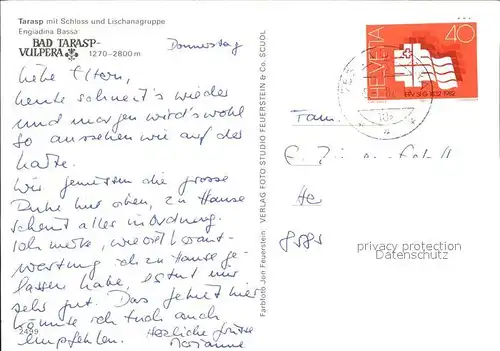 Tarasp mit Schloss und Lischanagruppe
Engiadina Bassa
BAD TARASP-
VULPERA 1270-2800m
Donnerstag
Liebe Eltern,
heute schneit's wieder
und morgen wird's wohl
so aussehen wie auf der
Karte.
Wir geniessen die grosse
Ruhe hier oben, zu Hause
scheint alles in Ordnung.
Ich merke, wieviel Verant-
wortung ich zu Hause ge-
lassen habe, es tut mir
sehr gut. Das Gebiet hier
könnte ich Euch auch
empfehlen. Herzliche Grüsse
Marianne
2499
Farbfoto Jon Feuerstein
VERLAG FOTO STUDIO FEUERSTEIN & Co. SCUOL
HELVETIA
40
1982
Fam.
E.
He
privacy protection
Datenschutz